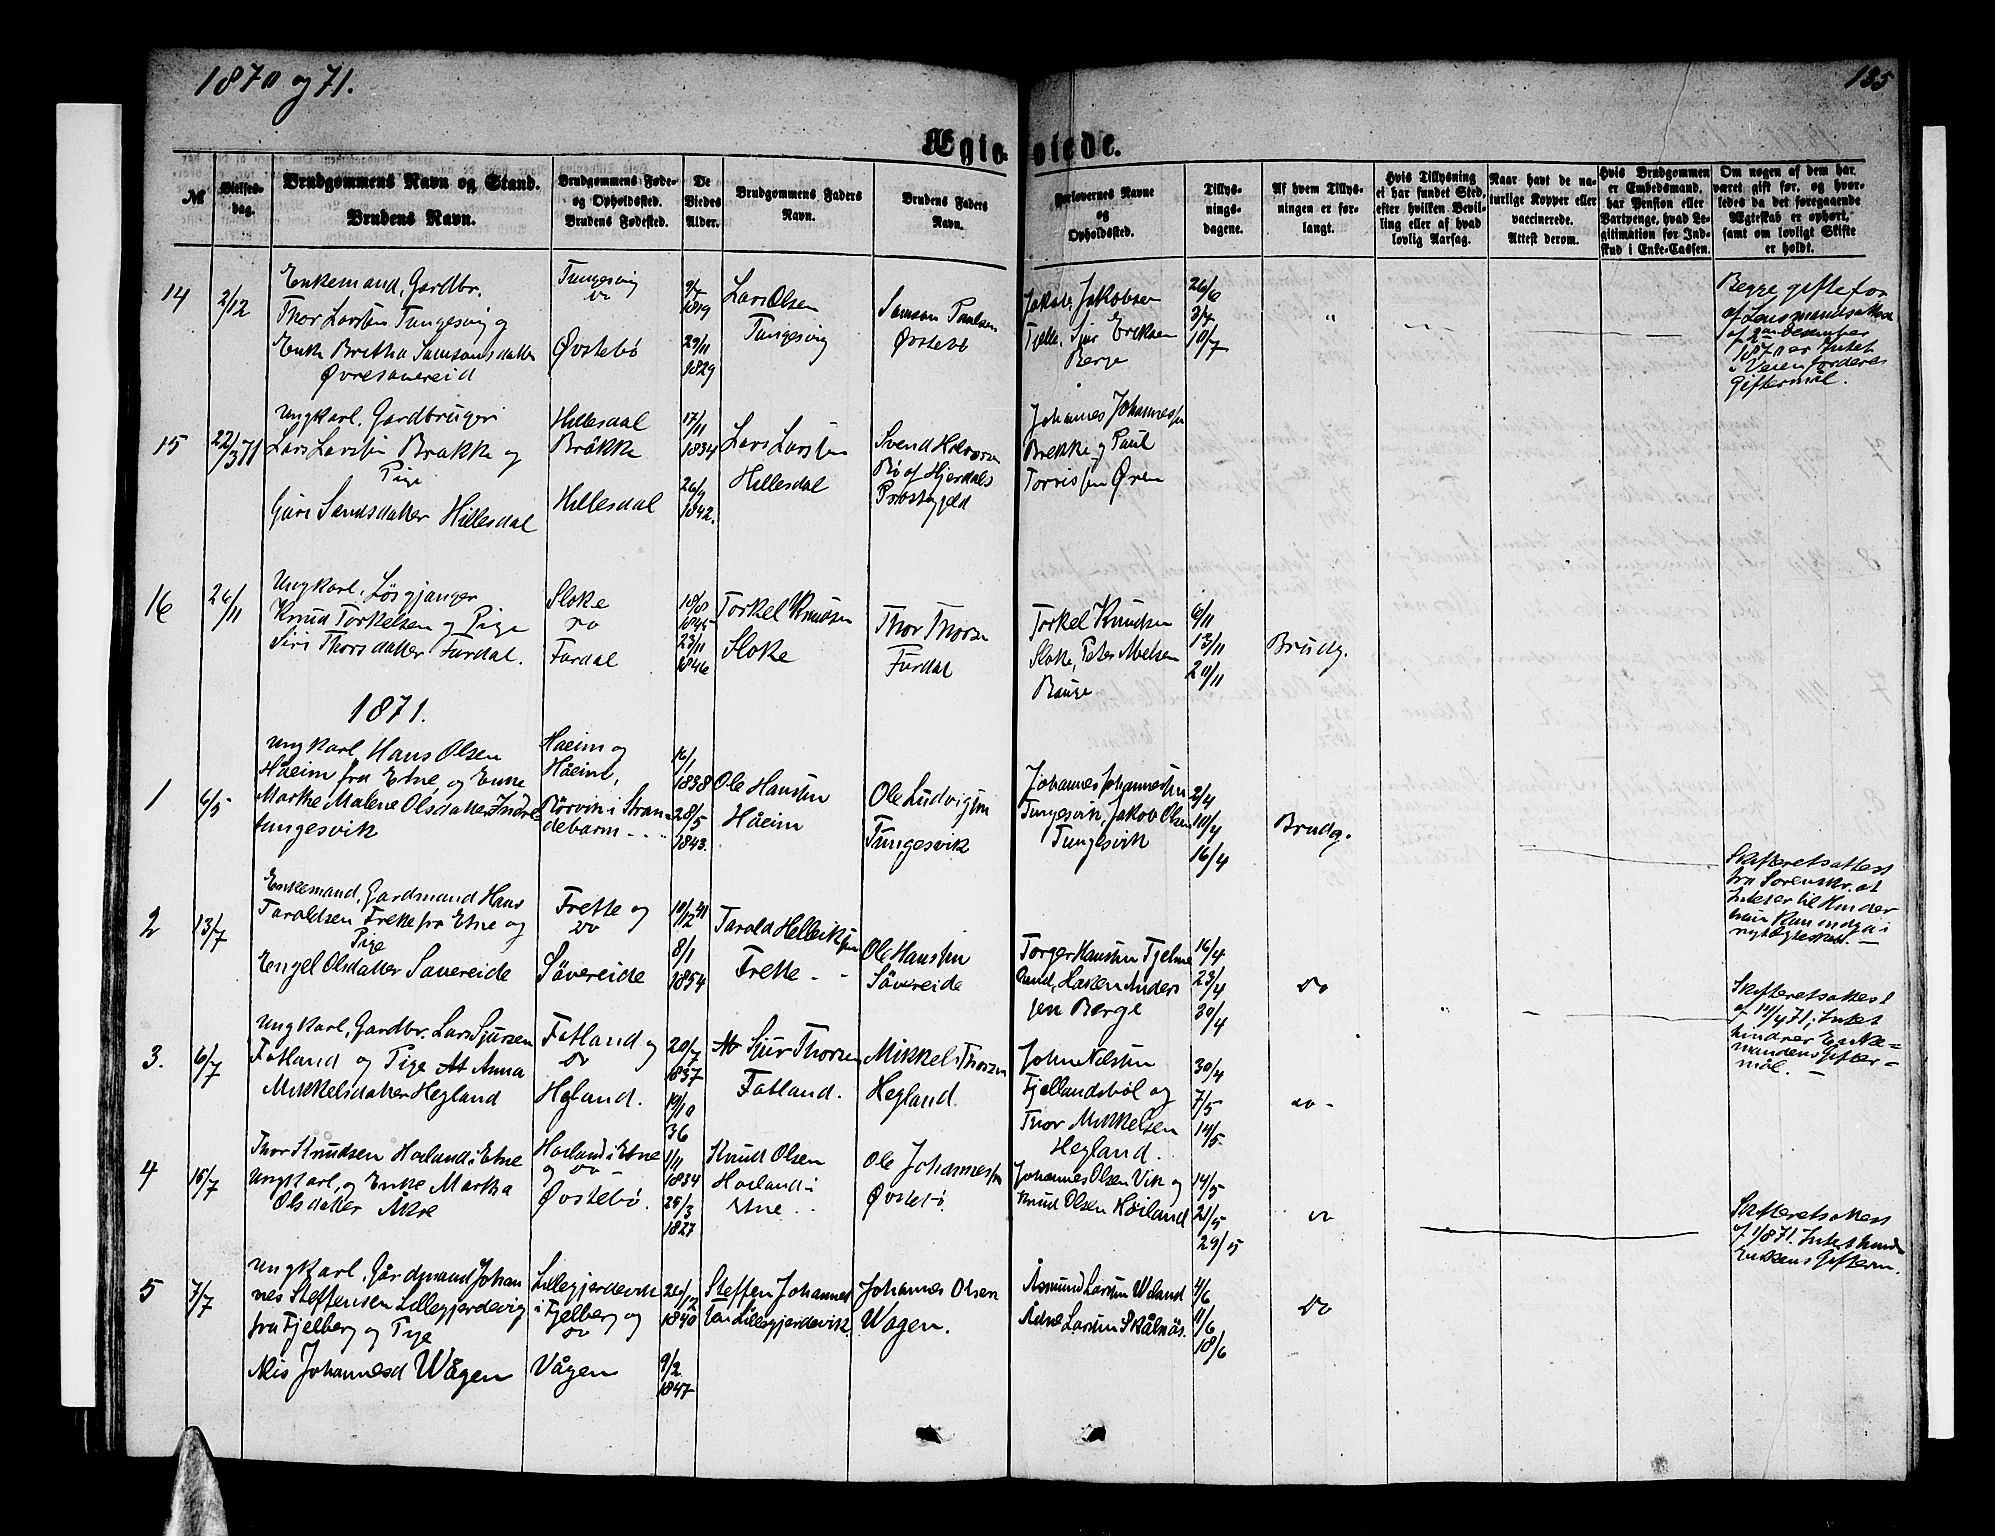 1870 og 71.
135
Ægteviede.
№
Vielses-
dag.
Brudgommens Navn og Stand.
Brudens Navn.
Brudgommens Føde-
og Opholdssted.
Brudens Fødested.
De
Viedes
Alder.
Brudgommens Faders
Navn.
Brudens Faders
Navn.
Forlovernes Navne
og
Opholdssted.
Tillys-
nings-
dagene.
Af hvem Tillys-
ningen er for-
langt.
Hvis Tillysning
ei har fundet Sted,
efter hvilken Bevil-
ling eller af hvad
lovlig Aarsag.
Naar havt de na-
turlige Kopper eller
vaccinerede.
Attest derom.
Hvis Brudgommen
er Embedsmand,
har Pension eller
Vartpenge, hvad Le-
gitimation for Ind-
skud i Enke-Cassen.
Om nogen af dem har
været gift før, og hvor-
ledes da det foregaaende
Ægteskab er ophørt,
samt om lovligt Skifte
er holdt.
14
2/12
Enkemand, Gardbr.
Thor Larsen Tungesvig og
Enke Britha Samsonsdatter
Øvresævereid
Tungesvig
Do
Øvstebö
9/7
1819
29/11
1829
Lars Olsen
Tungesvig
Samson Paulsen
Øvstebö
Jakob Jakobsen
Tjelle, Sjur Eriksen
Berge
26/6
3/7
10/7
"
Begge gifte før
af Lensmandsattest
af 2den Desember
1870 er Intet
i Veien for deres
Giftermål.
15
22/3 71
Ungkarl, Gardbruger
Lars Larsen Brakke og
Pige
Guri Svendsdatter Hillesdal
Hillesdal
Bråkke
Hillesdal
17/11
1834
26/9
1842.
Lars Larsen
Hillesdal
Svend Halvorsen
Bö af Hjerdals
Præstegjeld
Johannes Johannessen
Brekke og Paul
Torrissen Øren
16
26/11
Ungkarl, Løsgjænger
Knud Torkelsen og Pige
Siri Thorsdatter Furdal.
Sloke
Do
Furdal
18/8
1845
23/11
1846
Torkel Knudsen
Sloke
Thor Thorsen
Furdal
Torkel Knudsen
Sloke, Peter Melsen
Bauge
6/11
13/11
20/11
Brudg.
1871.
1
6/5
Ungkarl, Hans Olsen
Håeim fra Etne, og Enke
Marthe Malene Olsdatter Indre
tungesvik
Håeim og
Håeim,
Nörvik i Stran-
debarm
16/1
1838
28/5
1843.
Ole Hansen
Håeim
Ole Ludvigsen
Tungesvik
Johannes Johannessen
Tungesvik, Jakob Olsen
Tungesvik
2/4
10/4
16/4
Brudg.
Skifteretsattest
fra Sorenskr. at
Intet er til Hinder
hun kan indgå i
nyt Ægteskab. —
2
13/7
Enkemand, Gardmand Hans
Taroldsen Frette fra Etne og
Pige
Engel Olsdatter Sævereide
Frette og
Do
Sövereide
10/12 41
8/1
1854
Tarold Helliksen
Frette
Ole Hansen
Sövereide
Torger Hansen Tjelme-
land, Haken Anders-
sen Berge
16/4
23/4
30/4
Do
Skifteretsattest
af 14/4 71, Intet
hindrer Enke-
mandens Gifter-
mål. —
3.
6/7
Ungkarl, Gardbr. Lars Sjursen
Fatland og Pige At Anna
Mikkelsdatter Hegland
Fatland og
Do
Hegland.
20/7
1837
19/10
36
At Sjur Thorsen
Fatland.
Mikkel Thorsen
Hegland.
John Nilsen
Fjellandsböl og
Thor Mikkelsen
Hegland.
30/4
7/5
14/5
do -
4
15/7
Thor Knudsen Hovland i Etne
Ungkarl, og Enke Martha
Olsdatter Åkre
Hovland i Etne
og Do
Øvstebö.
1/11
1834
25/3
1827
Knud Olsen
Hovland i
Etne
Ole Johannessen
Øvstebö
Johannes Olsen Vik og
Knud Olsen Hoiland
14/5
21/5
29/5
Do
Skifteretsattest
af 1871. Intet hindr
Enkens Gifterm.
5
7/7
Ungkarl, Gårdmand Johan
nes Steffensen Lillegjerdevig
fra Fjelberg og Pige
Alis Johannesd Wågen
Lillegjerdevik
i Fjelberg og
Do
Vågen
26/12
1840
9/2
1847
Steffen Johannes
sen Lillegjerdevik
Johannes Olsen
Wagen.
Åsmund Larsen Weland
Ådne Larsen Skålnäs.
4/6
11/6
18/6
Do